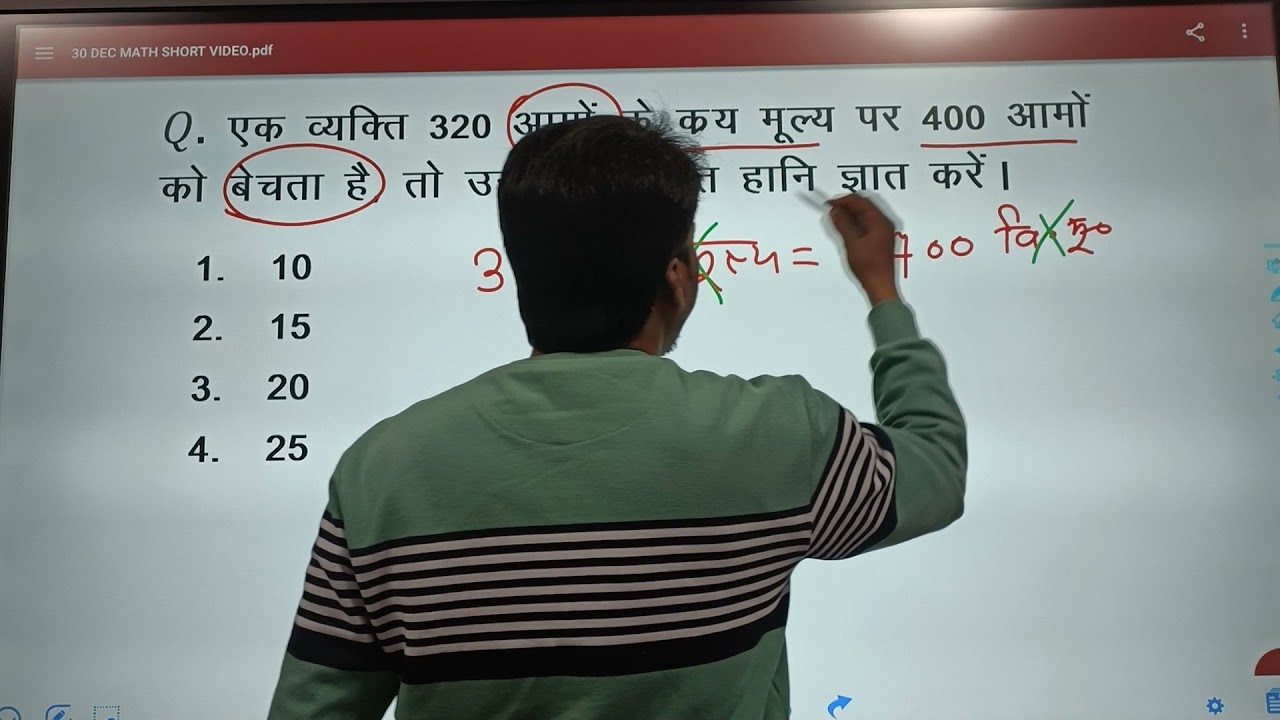 30 DEC MATH SHORT VIDEO.pdf
Q. एक व्यक्ति 320 आमों के कय मूल्य पर 400 आमों
को बेचता है तो हानि ज्ञात करें।
3 = 400 वि. मू०
1. 10
2. 15
3. 20
4. 25